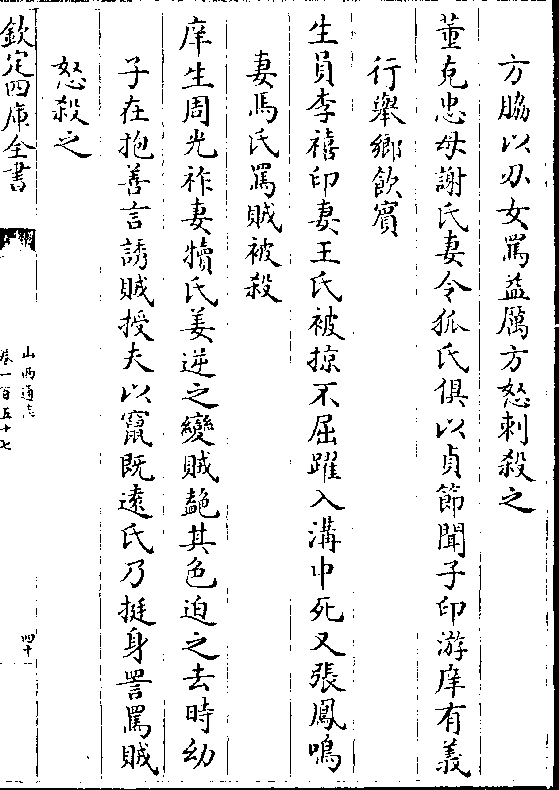 方脇以刃女罵益厲方怒刺殺之
董克忠母謝氏妻令狐氏俱以貞節聞子印游庠有義
行舉鄉飲賓
生員李禧印妻王氏被掠不屈躍入溝中死又張鳳鳴
妻馬氏罵賊被殺
庠生周光祚妻犢氏姜逆之變賊艶其色迫之去時幼
子在抱善言誘賊授夫以竄既遠氏乃挺身詈罵賊
怒殺之
欽定四庫全書
山西通志
卷一百五十七
四十